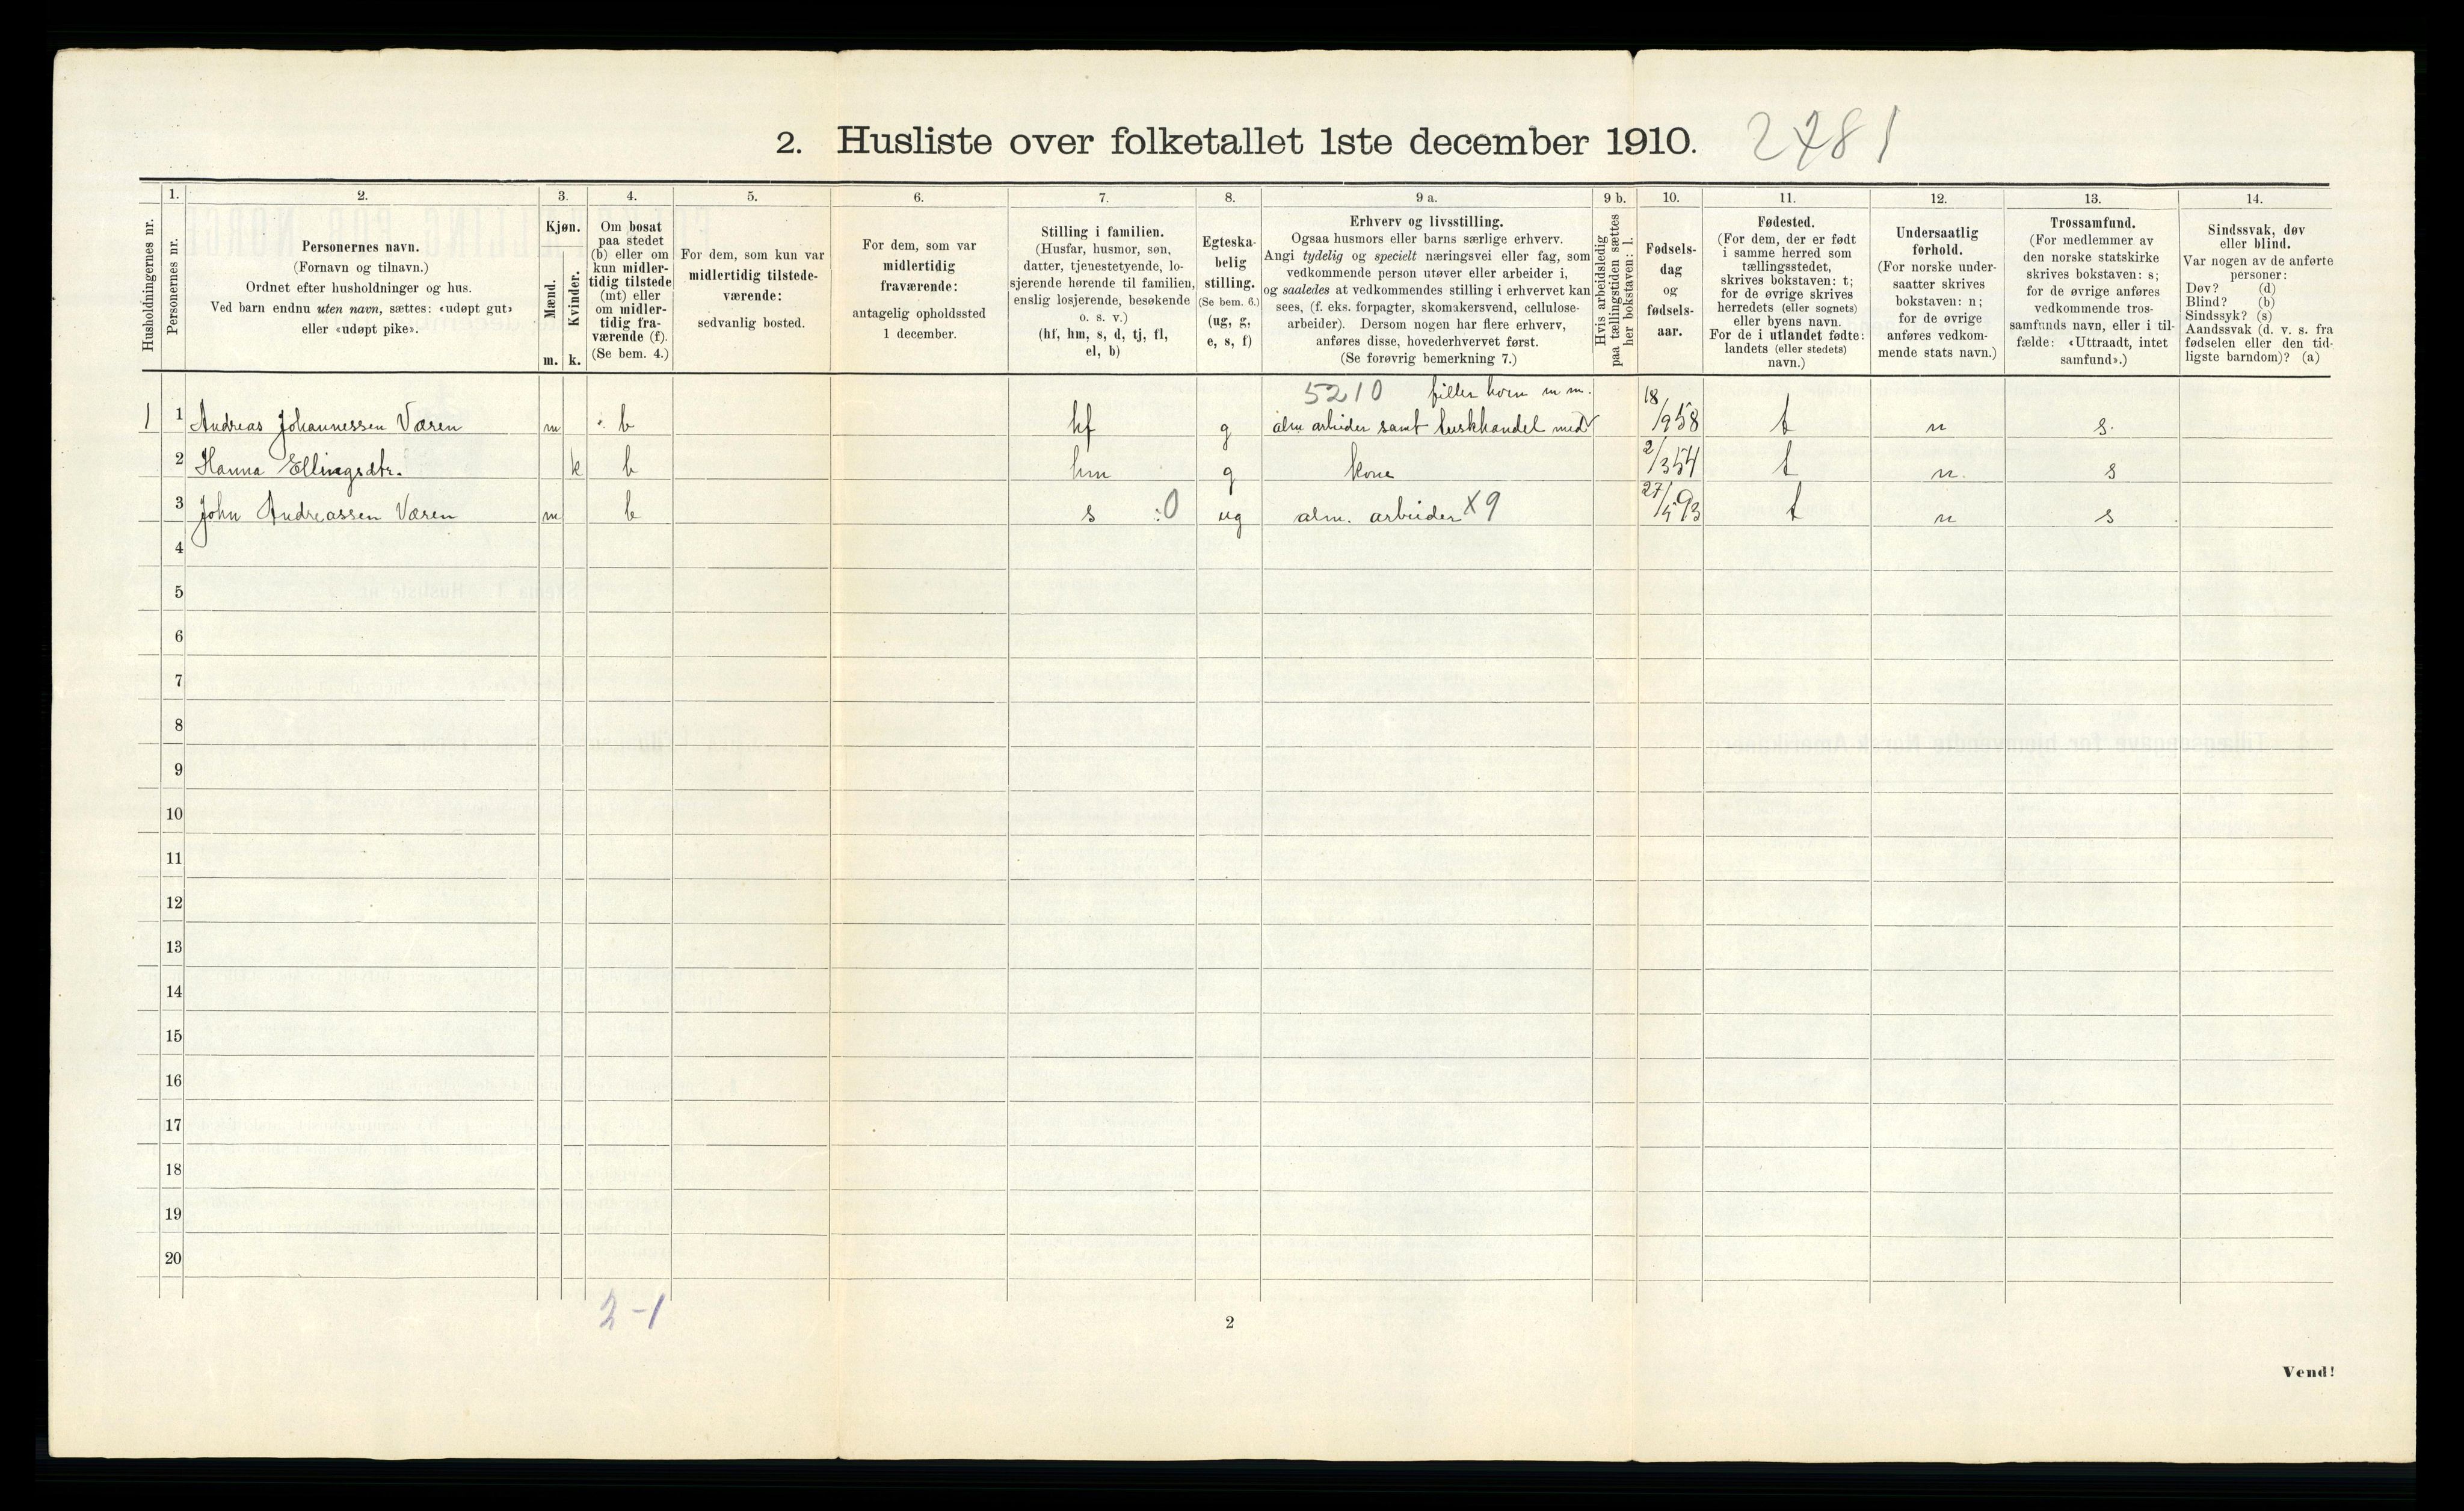 2. Husliste over folketallet 1ste december 1910. 2781
Husholdningernes nr.
1.
Personernes nr.
2.
Personernes navn.
(Fornavn og tilnavn.)
Ordnet efter husholdninger og hus.
Ved barn endnu uten navn, sættes: «udøpt gut»
eller «udøpt pike».
3.
Kjøn.
Mænd.
m.
Kvinder.
k.
4.
Om bosat
paa stedet
(b) eller om
kun midler-
tidig tilstede
(mt) eller
om midler-
tidig fra-
værende (f).
(Se bem. 4.)
5.
For dem, som kun var
midlertidig tilstede-
værende:
sedvanlig bosted.
6.
For dem, som var
midlertidig
fraværende:
antagelig opholdssted
1 december.
7.
Stilling i familien.
(Husfar, husmor, søn,
datter, tjenestetyende, lo-
sjerende hørende til familien,
enslig losjerende, besøkende
o. s. v.)
(hf, hm, s, d, tj, fl,
el, b)
8.
Egteska-
belig
stilling.
(Se bem. 6.)
(ug, g,
e, s, f)
9 a.
Erhverv og livsstilling.
Ogsaa husmors eller barns særlige erhverv.
Angi tydelig og specielt næringsvei eller fag, som
vedkommende person utøver eller arbeider i,
og saaledes at vedkommendes stilling i erhvervet kan
sees, (f. eks. forpagter, skomakersvend, cellulose-
arbeider). Dersom nogen har flere erhverv,
anføres disse, hovederhvervet først.
(Se forøvrig bemerkning 7.)
9 b.
Hvis arbeidsledig
paa tællingstiden sættes
her bokstaven: l.
10.
Fødsels-
dag
og
fødsels-
aar.
11.
Fødested.
(For dem, der er født
i samme herred som
tællingsstedet,
skrives bokstaven: t;
for de øvrige skrives
herredets (eller sognets)
eller byens navn.
For de i utlandet fødte:
landets (eller stedets)
navn.)
12.
Undersaatlig
forhold.
(For norske under-
saatter skrives
bokstaven: n;
for de øvrige
anføres vedkom-
mende stats navn.)
13.
Trossamfund.
(For medlemmer av
den norske statskirke
skrives bokstaven: s;
for de øvrige anføres
vedkommende tros-
samfunds navn, eller i til-
fælde: «Uttraadt, intet
samfund».)
14.
Sindssvak, døv
eller blind.
Var nogen av de anførte
personer:
Døv? (d)
Blind? (b)
Sindssyk? (s)
Aandssvak (d. v. s. fra
fødselen eller den tid-
ligste barndom)? (a)
5210 filler horn m m.
1 1 Andreas Johannessen Væren m b hf g alm arbeider samt tuskhandel med 18/9 58 t n s.
2 Hanna Ellingsdtr. k b hm g kone 2/3 54 t n. s
3 John Andreassen Væren m b s :0 ug alm. arbeider X9 27/5 93 t n s
4
5
6
7
8
9
10
11
12
13
14
15
16
17
18
19
20
2-1
2
Vend!